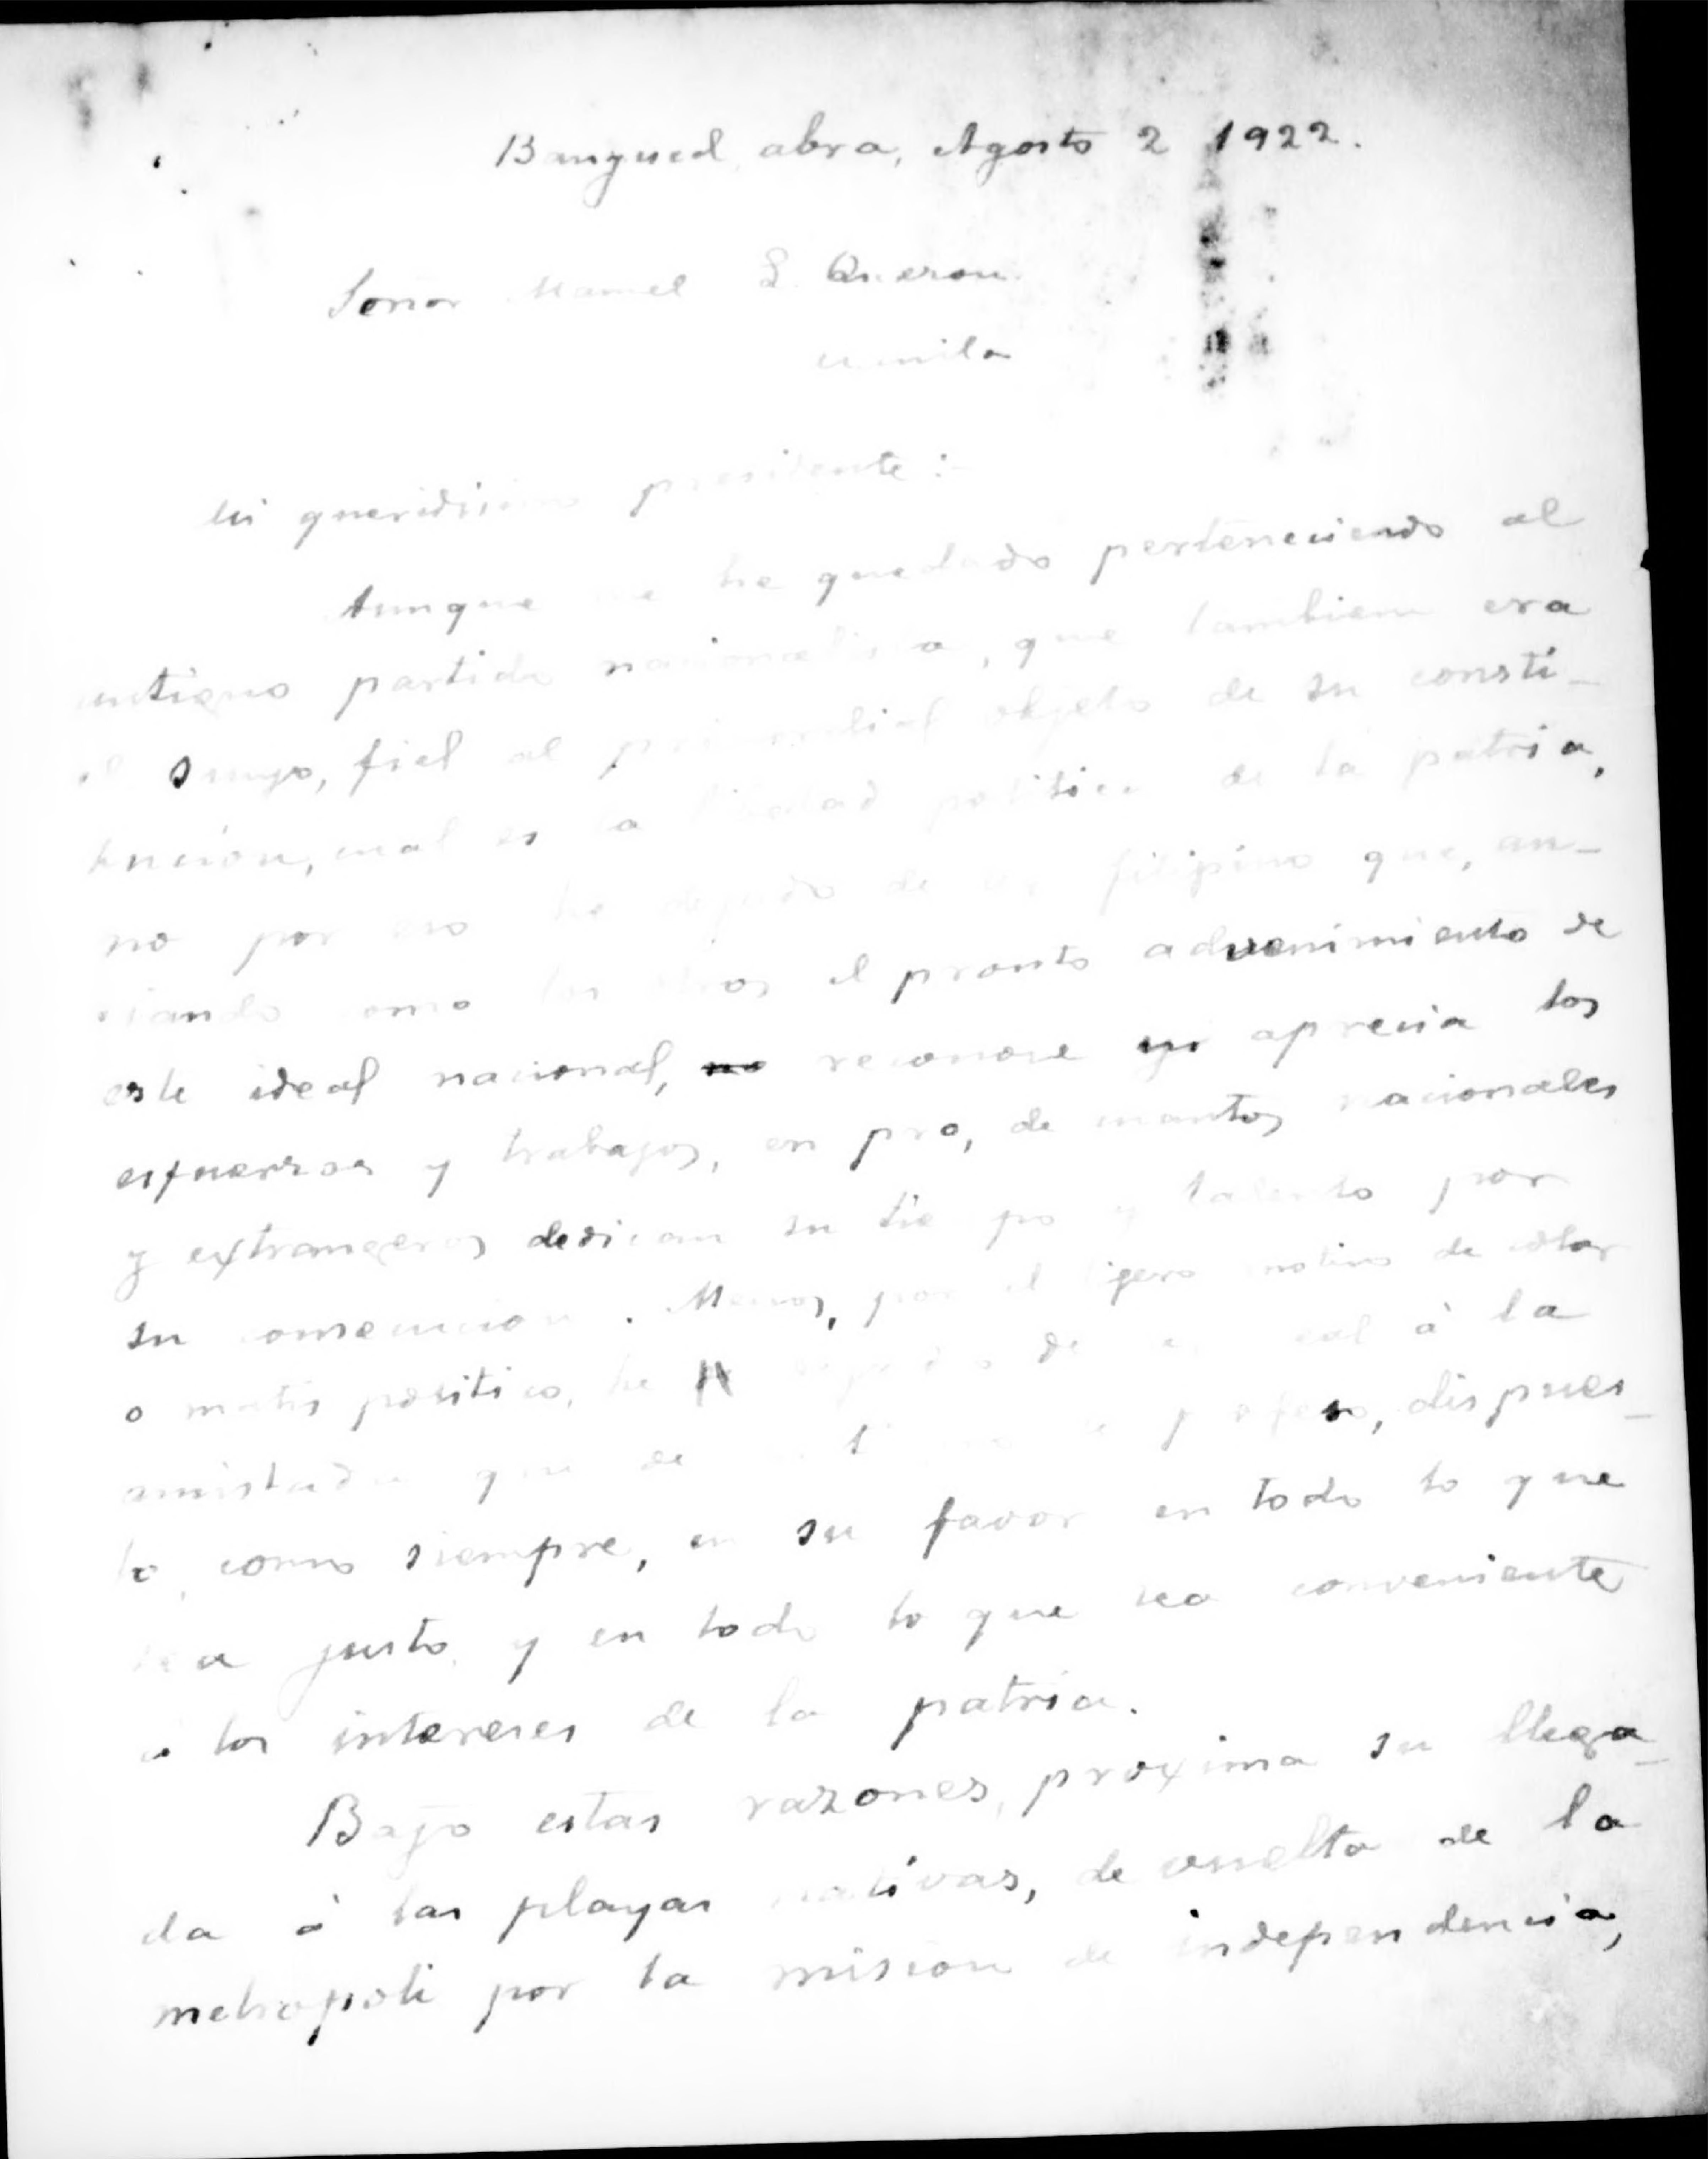 Bangued, abra, Agosto 2 1922.
Señor Manuel L. Quezon
Manila
Mi queridisimo presidente:
Aunque me he quedado perteneciendo al
antiguo partido nacionalista, que tambien era
el suyo, fiel al primordial objeto de su consti-
tucion, cual es la libertad politica de la patria,
no por eso he dejado de ser filipino que, an-
siando como los otros el pronto advenimiento de
este ideal nacional, reconoce y aprecia los
esfuerzos y trabajos, en pro, de cuantos nacionales
y extrangeros dedican su tiempo y talento por
su consecucion. Menos, por el ligero motivo de color
o matis politico, he dejado de ser leal á la
amistad que de le profeso, dispues-
to, como siempre, en su favor en todo lo que
sea justo y en todo lo que sea conveniente
á los intereses de la patria.
Bajo estas razones, proxima su llega-
da á las playas nativas, de vuelta de la
metropoli por la mision de independencia,